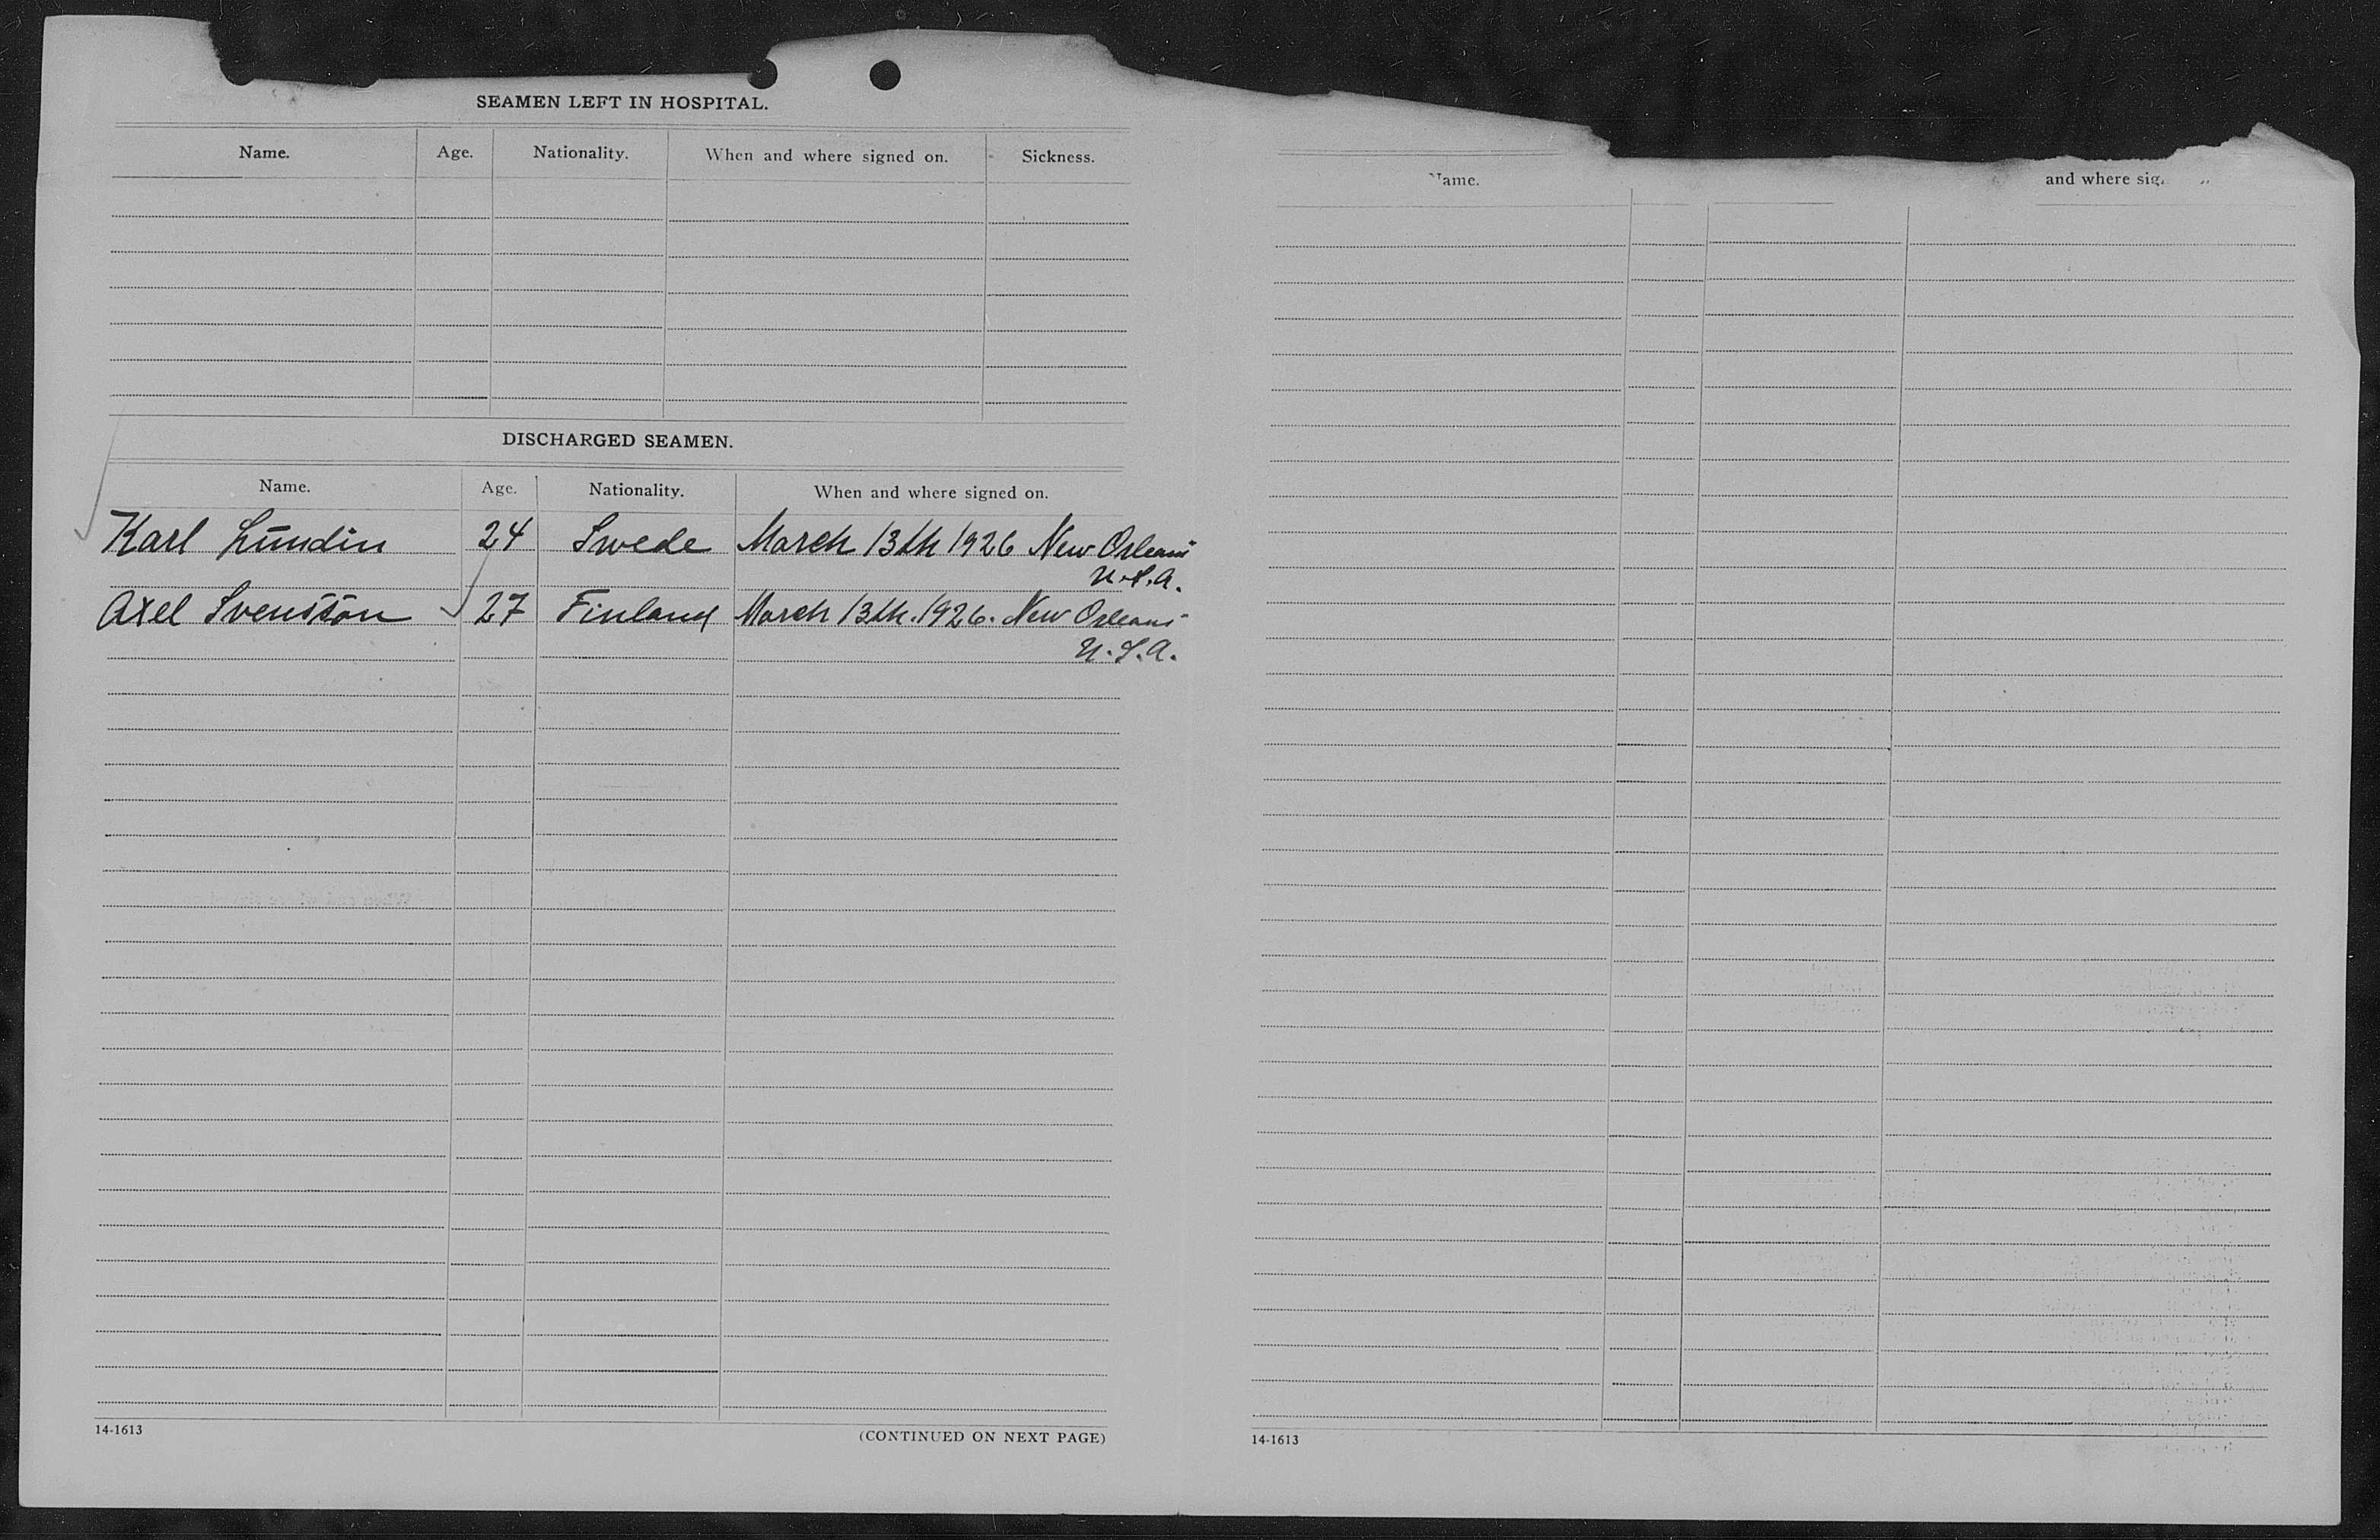 SEAMEN LEFT IN HOSPITAL.
Name. Age. Nationality. When and where signed on. Sickness.
DISCHARGED SEAMEN.
Name. Age. Nationality. When and where signed on.
Karl Lundin 24 Swede March 13th 1926 New Orleans
U.S.A.
Axel Svensson 27 Finland March 13th. 1926. New Orleans
U.S.A.
14-1613
(CONTINUED ON NEXT PAGE)
ame. and where sig
14-1613